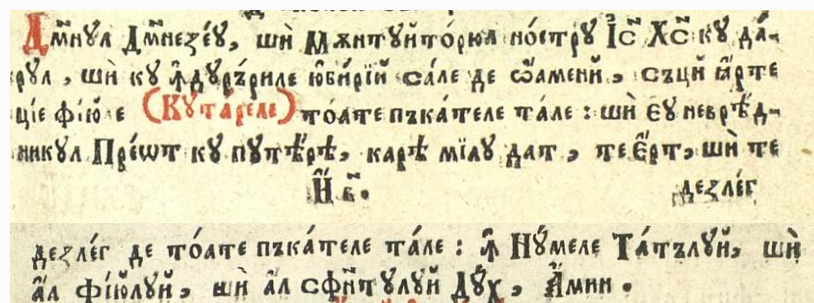 Дм҃нꙋл Дм҃незе́ꙋ, шѝ Мжнтꙋито́рюл но́стрꙋ І҆с҃ Хс҃ кꙋ да́-
рꙋл, шѝ кꙋ ꙟ҆дꙋръ́риле ю҆би́рїй са́ле де ѡ҆́аменй, съци ꙗ҆́рте
цїе фїю́ле (Кꙋта́реле) то́ате пъка́теле та́ле : шѝ е҆ꙋ неврѣ́д-
никꙋл Пре́ѡт кꙋ пꙋтѣ́рѣ, карѣ мїаꙋ дат, те е҆́рт, шѝ те
И҃ в҃.
дезле́г
дезле́г де то́ате пъка́теле та́ле : ꙟ҆ Нꙋ́меле Та́тълꙋй, шѝ
а҆́л фїю́лꙋй, шѝ а҆́л сфн҃тꙋлꙋй Дꙋ́х, А҆мин.